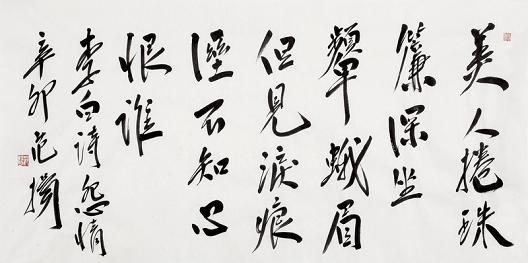 美人捲珠
簾深坐
顰蛾眉
但見淚痕
溼不知心
恨誰
李白诗怨情
辛卯范